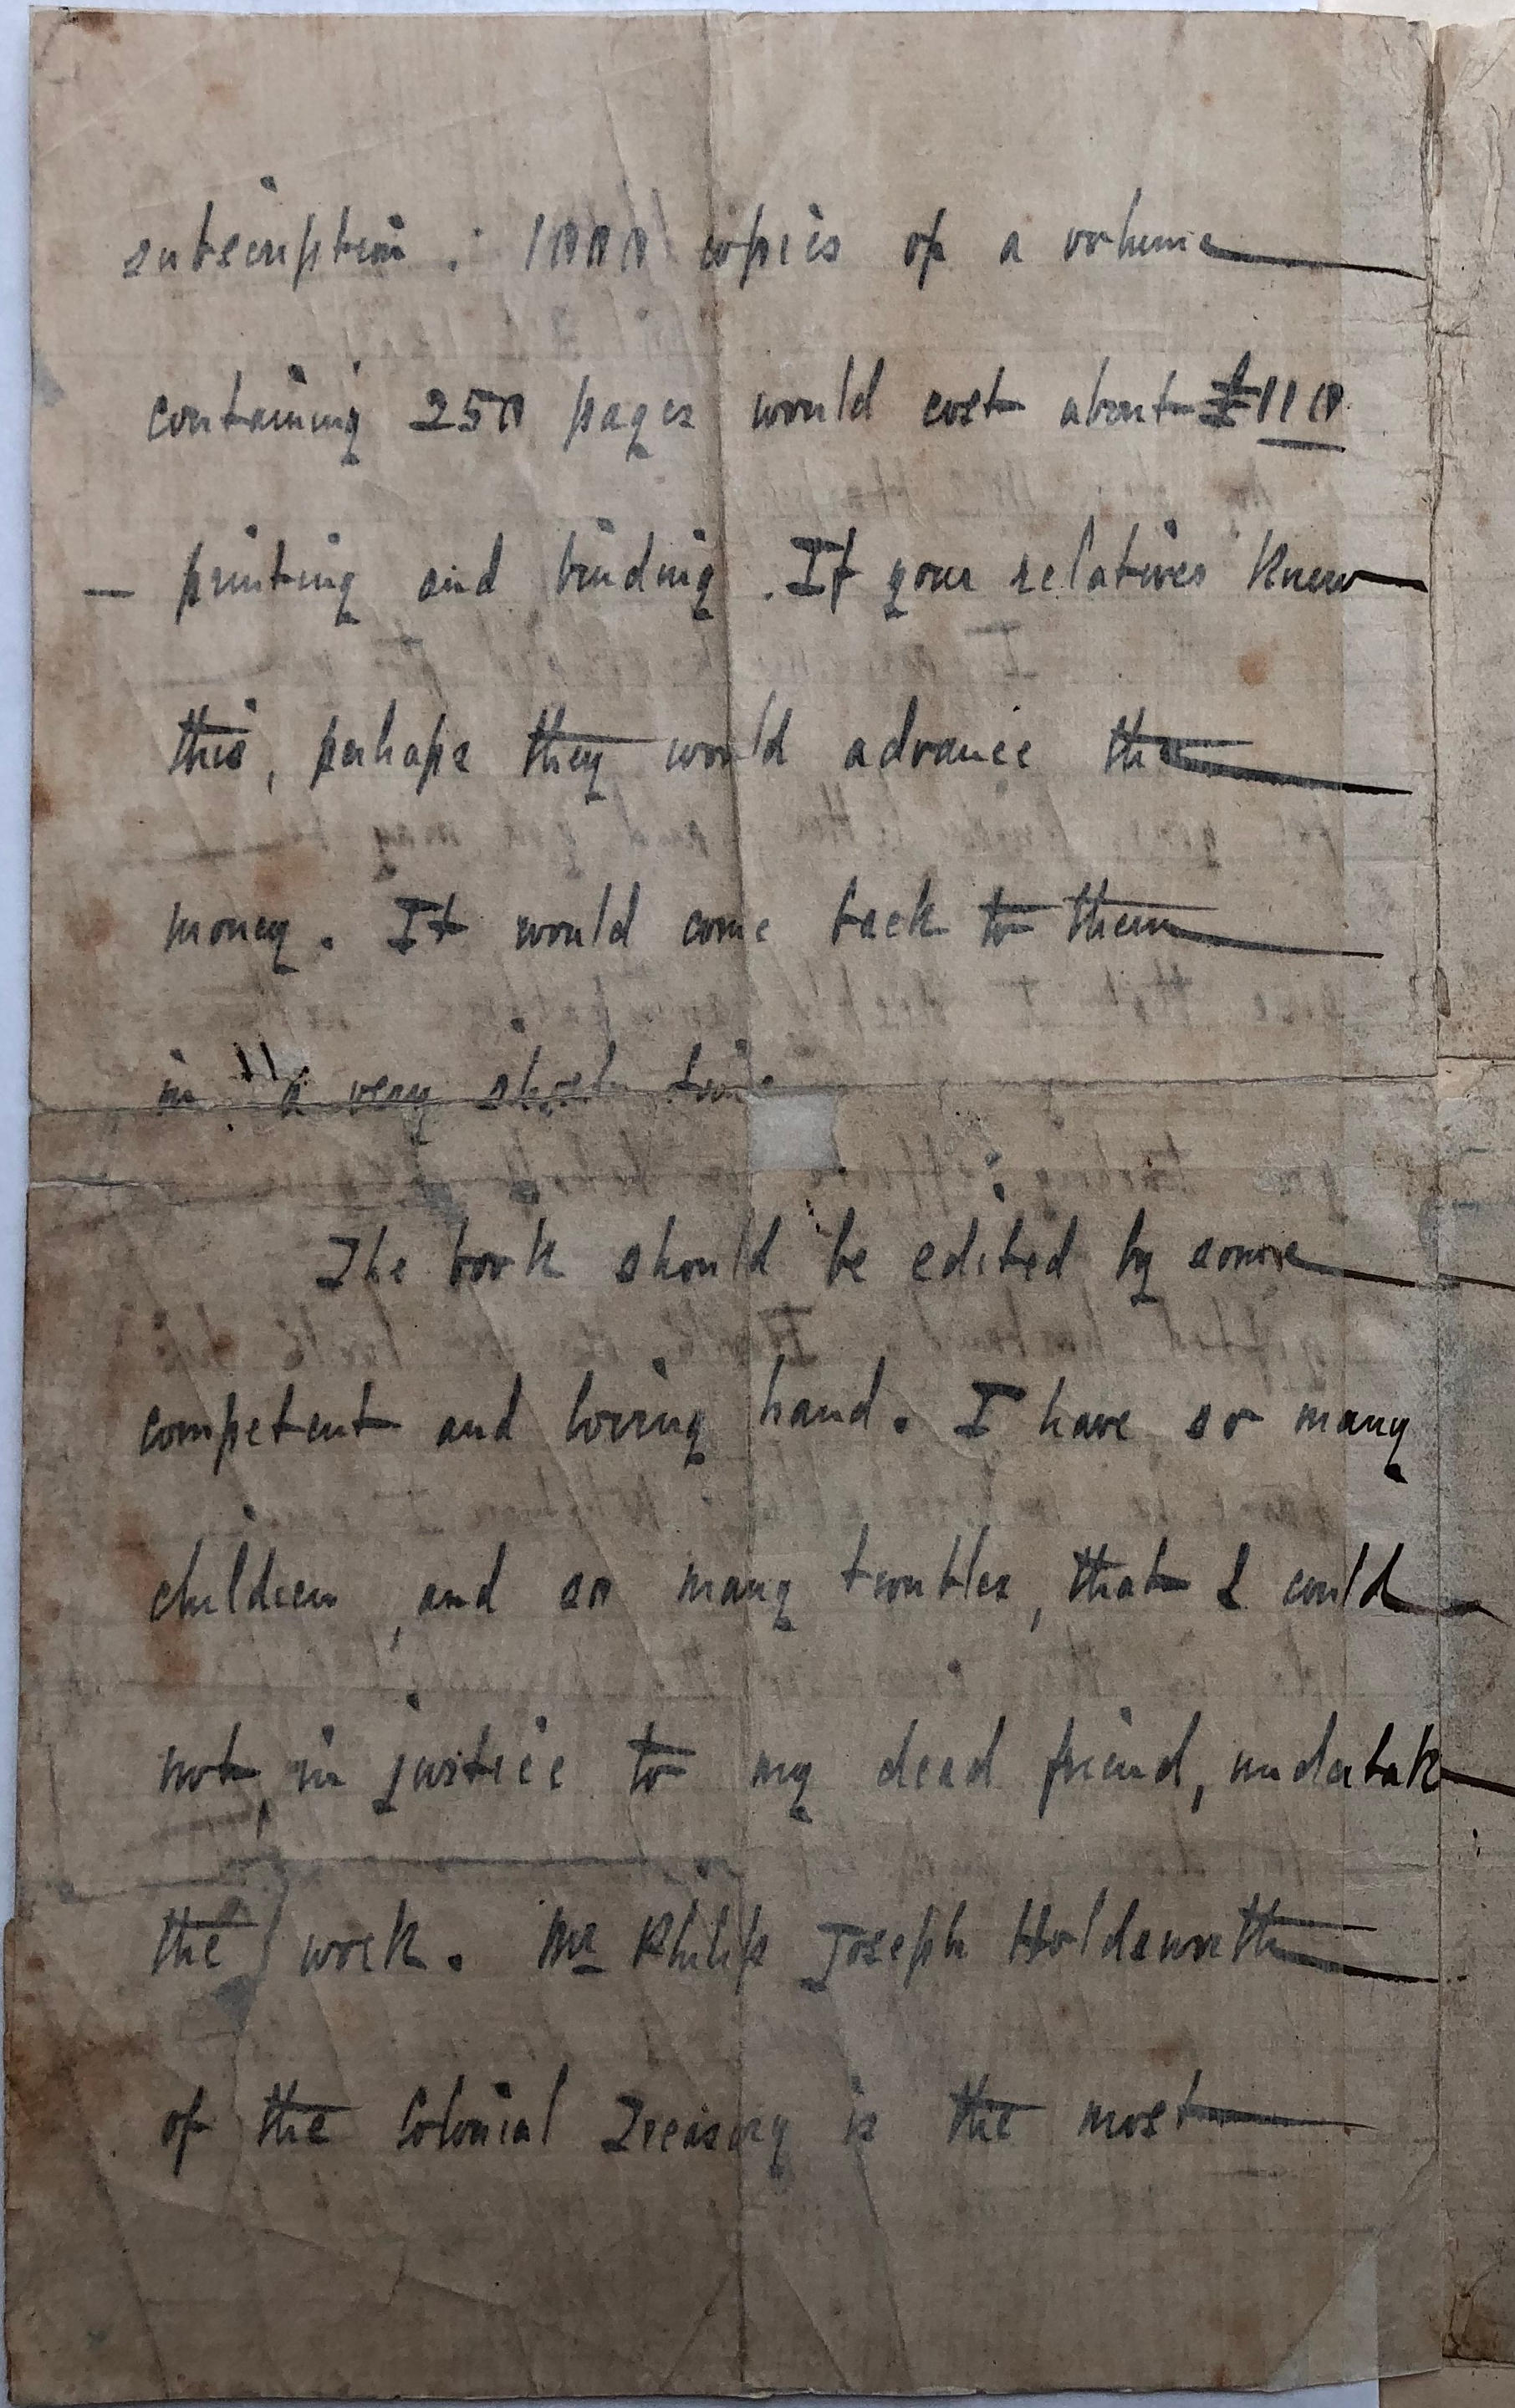 subscription : 1000 copies of a volume
containing 250 pages would cost about £110
— printing and binding. If your relatives knew
this, perhaps they would advance the
money. It would come back to them
in a very short time
The book should be edited by some
competent and loving hand. I have so many
children, and so many troubles, that I could
not, in justice to my dead friend, undertak
the work. Mr Philip Joseph Holdsworth
of the Colonial Treasury is the most